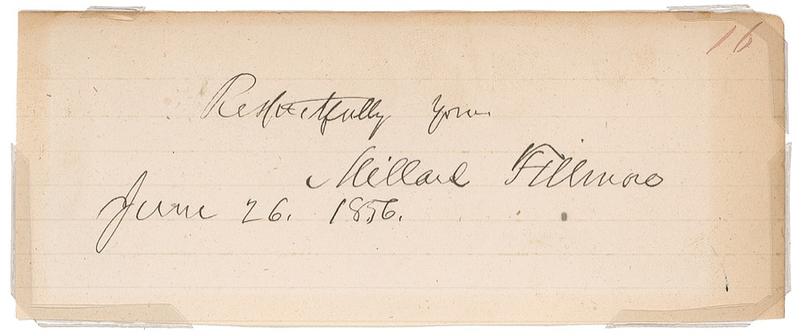 16
Respectfully yours
Millard Fillmore
June 26. 1856.